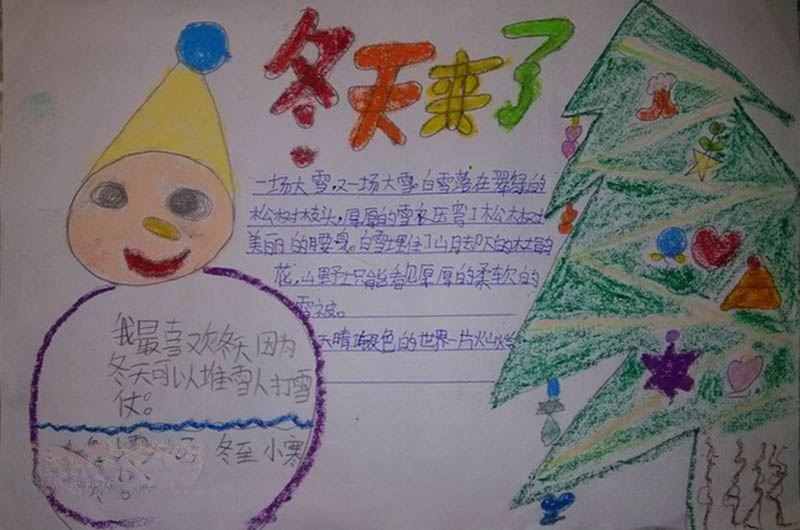 冬天来了
一场大雪,又一场大雪。白雪落在翠绿的
松树枝头,厚厚的雪衣压弯了松树
美丽的腰身。白雪埋住了山
花,山野上只能看见厚厚的柔软的
雪被。
天晴 银色的世界一片
我最喜欢冬天因为
冬天可以堆雪人打雪
仗。
冬至 小寒